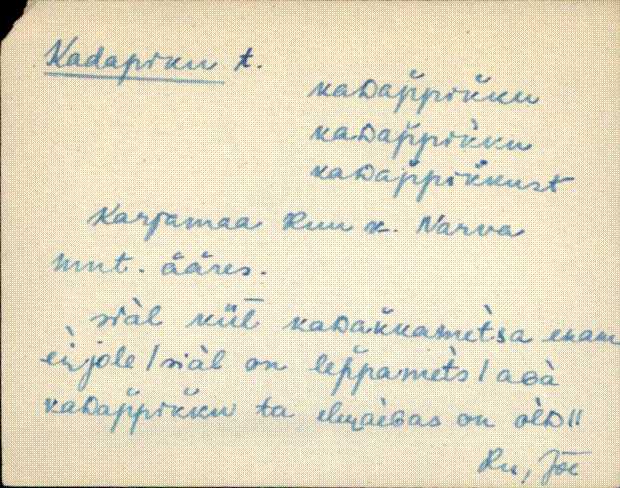 Kadapiku t.
kaDap̆pik̆ku
kaDap̆pik̀ku
kaDap̆pik̆kust
Karjamaa Ruu k. Narva
mnt. ääres.
siàl kül̄ kaDak̆kamet̀sa enam
ei jole / siàl on lep̆pamet̀s / aGà
kaDap̆pik̆ku ta on òlD //
Ru, Jõe